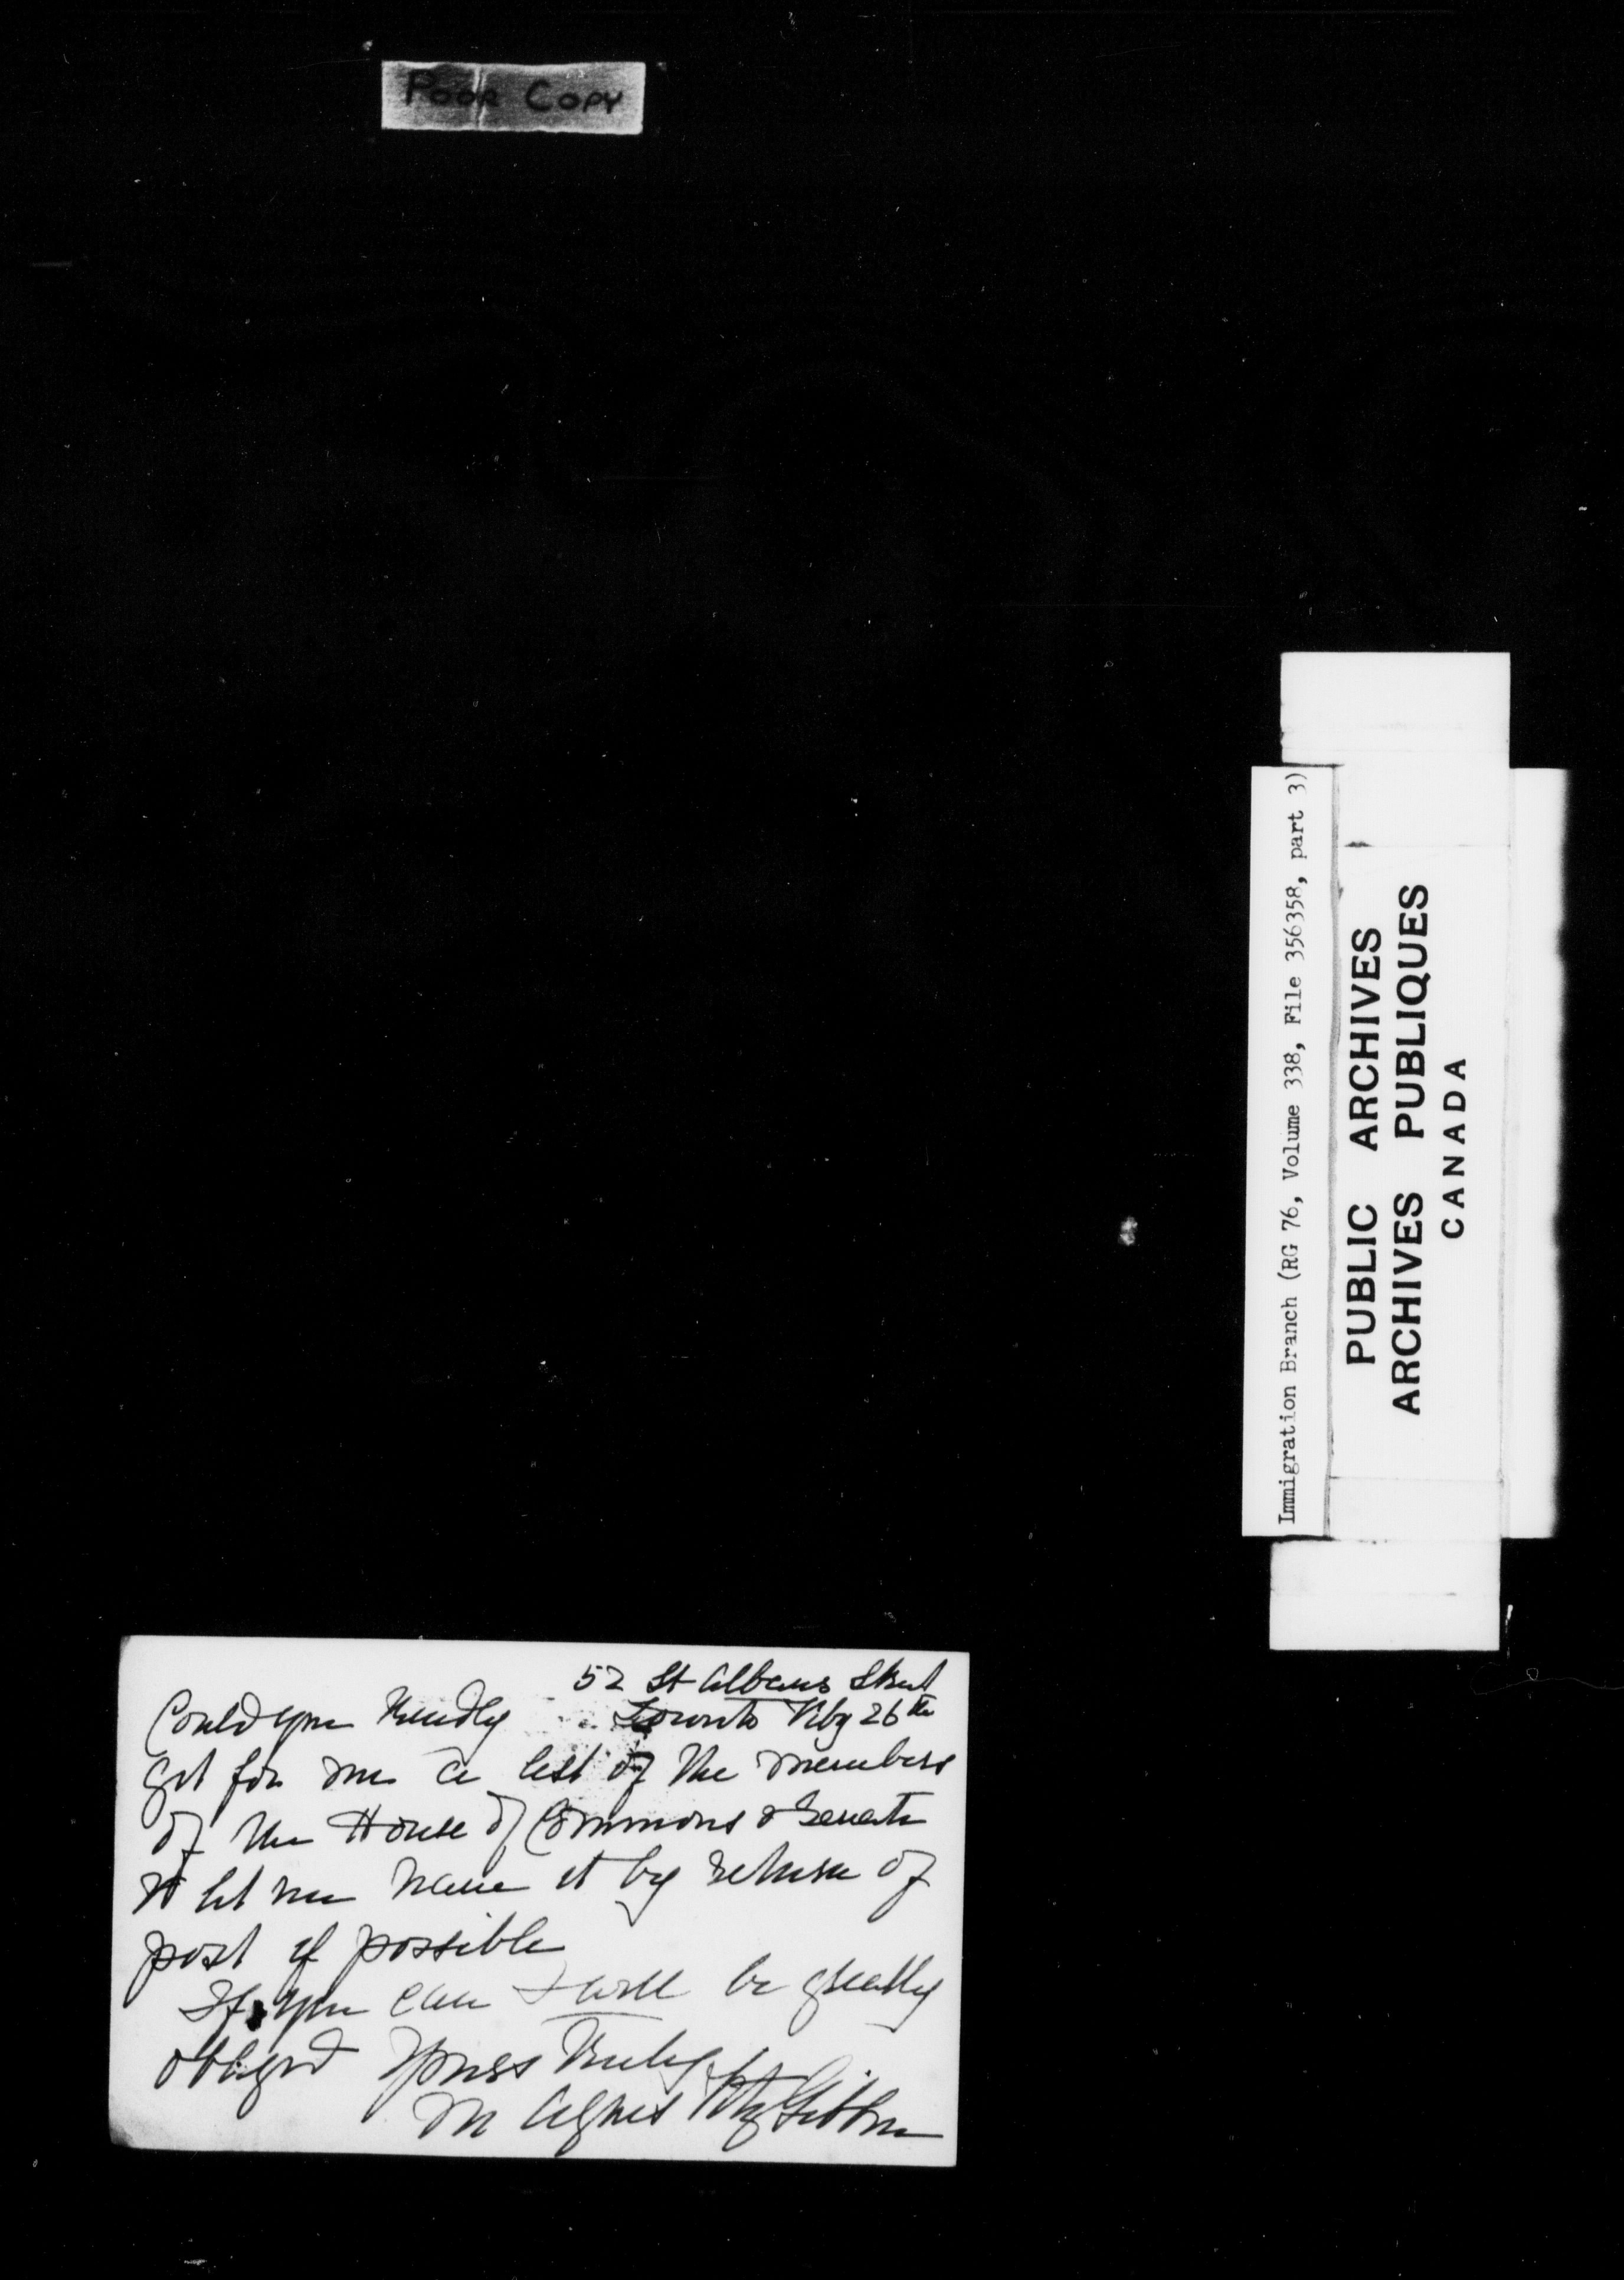 Poor Copy
Immigration Branch (RG 76, Volume 338, File 356358, part 3)
PUBLIC ARCHIVES
ARCHIVES PUBLIQUES
CANADA
52 St Albans Street
Toronto Feby 26th
Could you kindly
get for me a list of the members
of the House of Commons & Senate
& let me have it by return of
post if possible
If you can I will be greatly
obliged Yours truly
M Agnes FitzGibbon